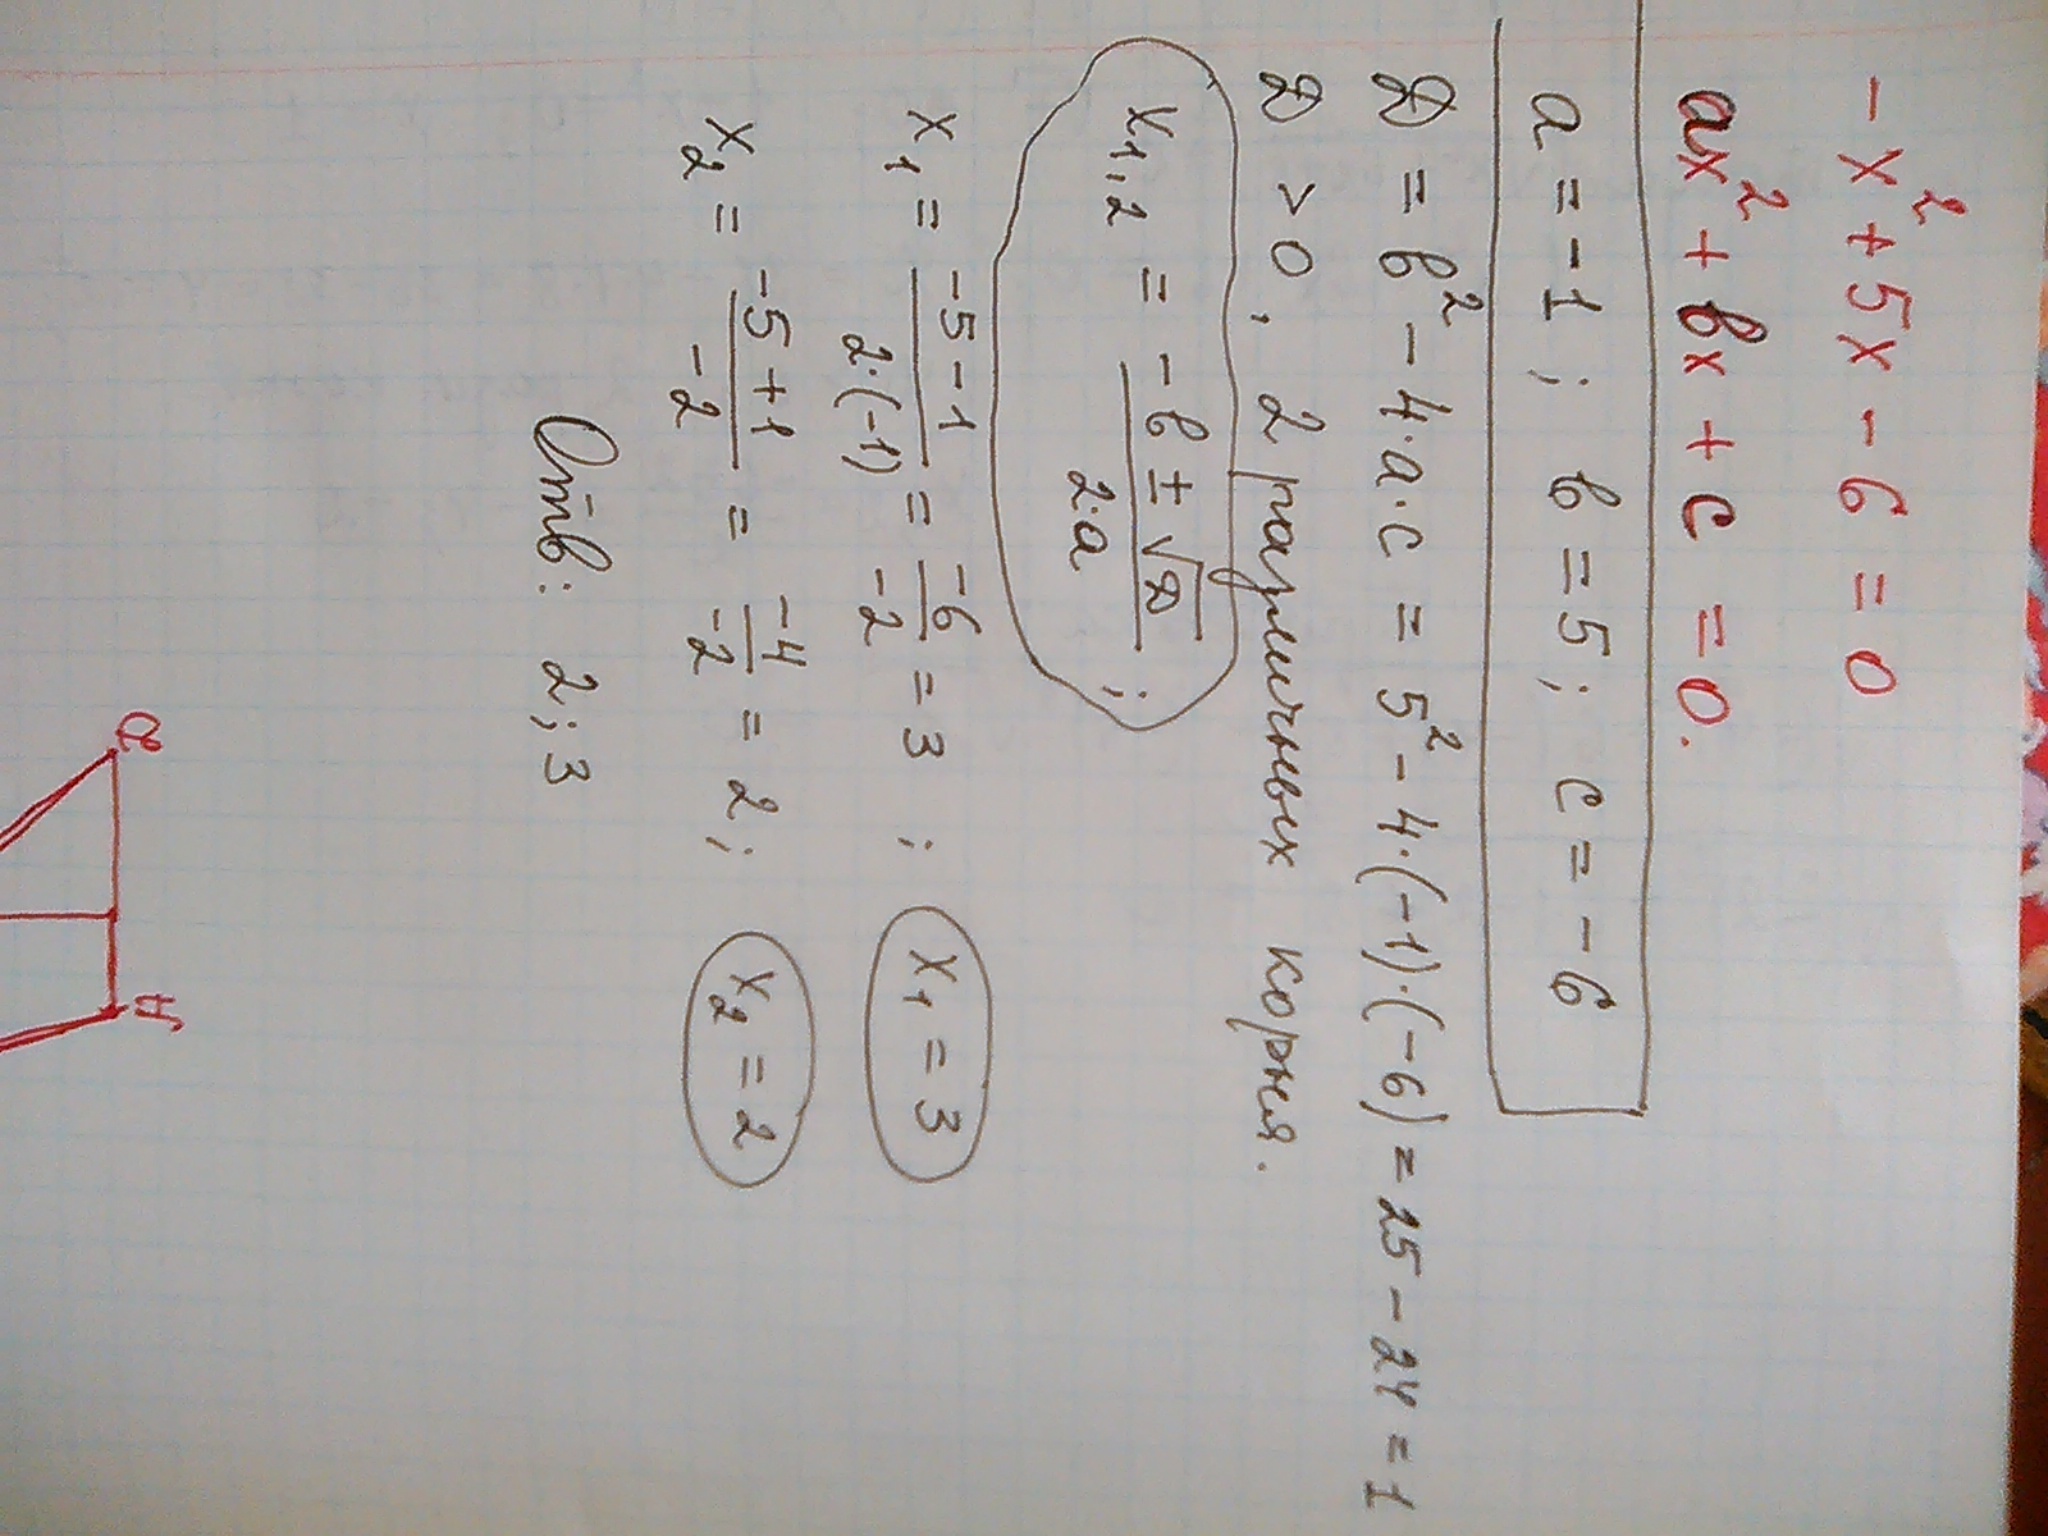 -x² + 5x - 6 = 0
ax² + bx + c = 0.
a = -1 ; b = 5 ; c = -6
D = b² - 4·a·c = 5² - 4·(-1)·(-6) = 25 - 24 = 1
D > 0, 2 различных корня.
x₁,₂ = (-b ± √D) / (2·a) ;
x₁ = (-5 - 1) / (2·(-1)) = -6 / -2 = 3 ; x₁ = 3
x₂ = (-5 + 1) / -2 = -4 / -2 = 2 ; x₂ = 2
Отв: 2; 3